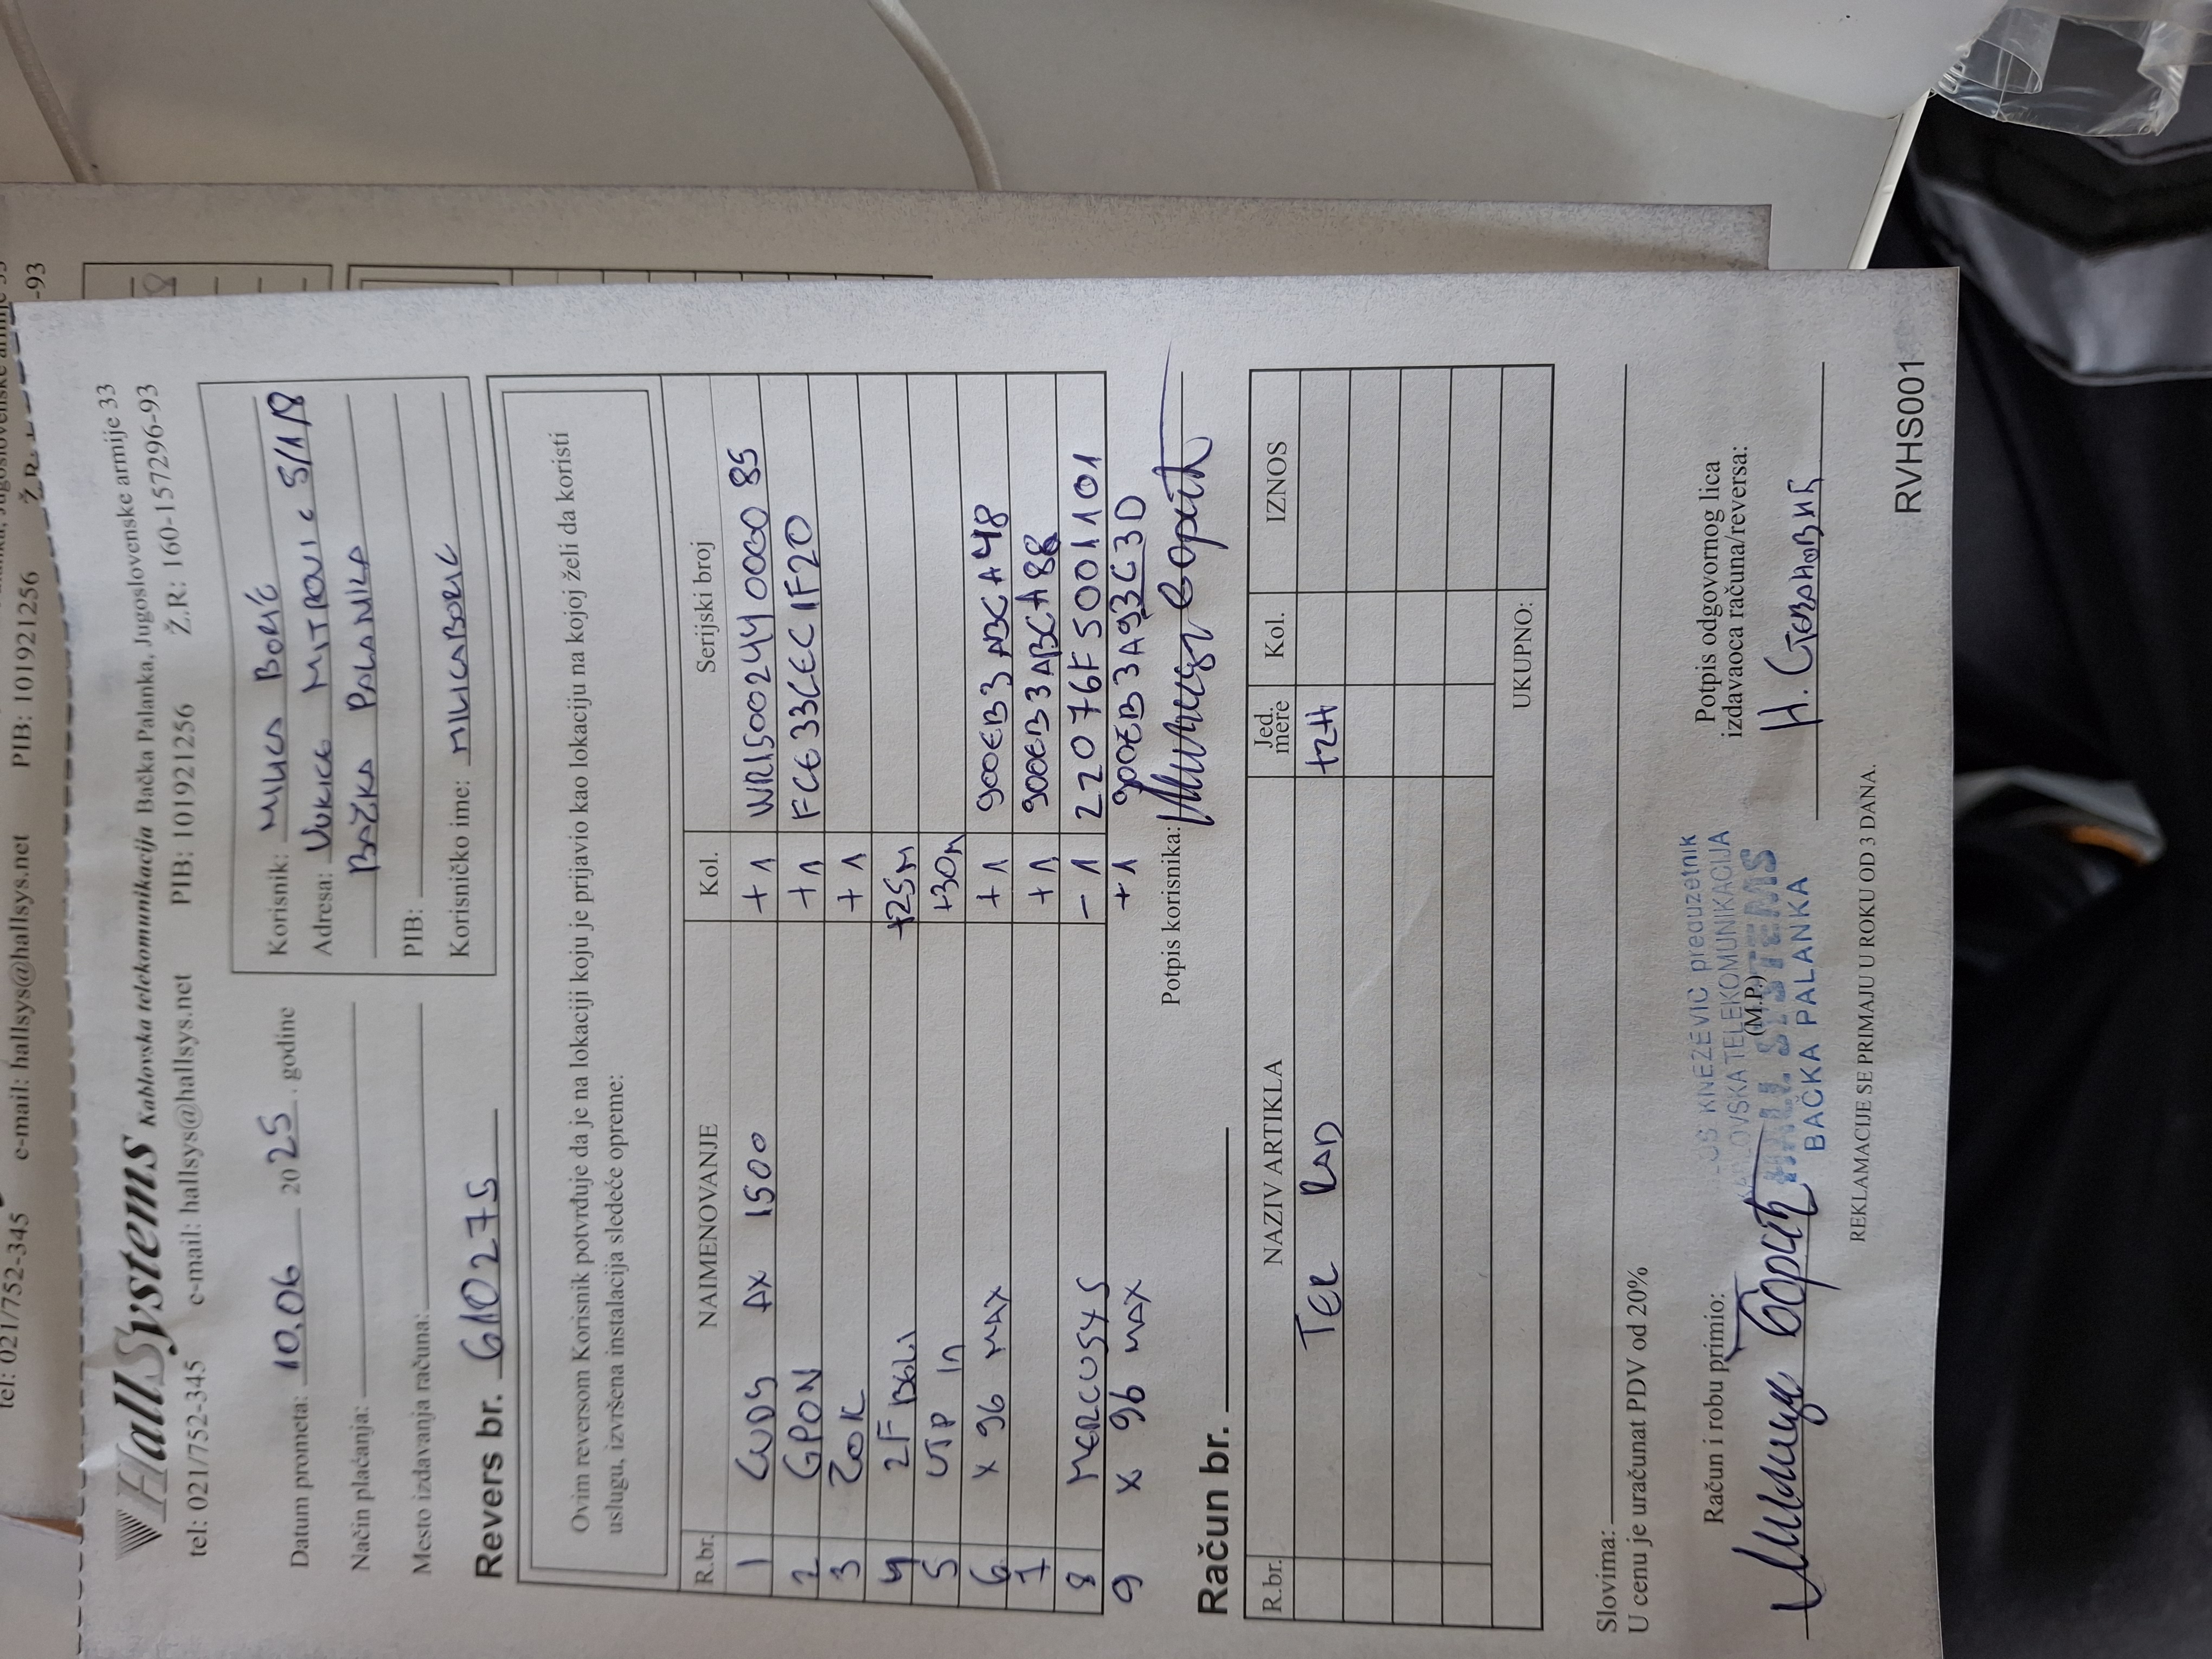 HallSystems Kablovska telekomunikacija Bačka Palanka, Jugoslovenske armije 33
tel: 021/752-345 e-mail: hallsys@hallsys.net PIB: 101921256 Ž.R.: 160-157296-93
Datum prometa: 10.06 2025. godine
Način plaćanja:
Mesto izdavanja računa:
Korisnik: MILICA BORIĆ
Adresa: VUKICE MITROVIC 5/1/8
BAČKA PALANKA
PIB:
Korisničko ime: MILICABORIC
Revers br. 610275
Ovim reversom Korisnik potvrđuje da je na lokaciji koju je prijavio kao lokaciju na kojoj želi da koristi
uslugu, izvršena instalacija sledeće opreme:
R.br. NAIMENOVANJE Kol. Serijski broj
1 CUDY AX 1500 +1
2 GPON +1 FC633CEC1F20
3 ZOK +1
4 2F +25M
5 UTP In +30M
6 X 96 MAX +1 900EB3ABCA48
7 +1
8 MERCUSYS -1 22076F5001101
9 X 96 MAX +1 900EB3A93C3D
Potpis korisnika: Милица Борић
Račun br.
R.br. NAZIV ARTIKLA Jed. mere Kol. IZNOS
TER RAD +2H
UKUPNO:
Slovima:
U cenu je uračunat PDV od 20%
Račun i robu primio:
Милица Борић
KNEŽEVIĆ preduzetnik
KABLOVSKA TELEKOMUNIKACIJA
HALL SYSTEMS
(M.P.)
BAČKA PALANKA
Potpis odgovornog lica
izdavaoca računa/reversa:
Н. Стевановић
REKLAMACIJE SE PRIMAJU U ROKU OD 3 DANA.
RVHS001
tel: 021/752-345 e-mail: hallsys@hallsys.net PIB: 101921256 Ž.R. -93